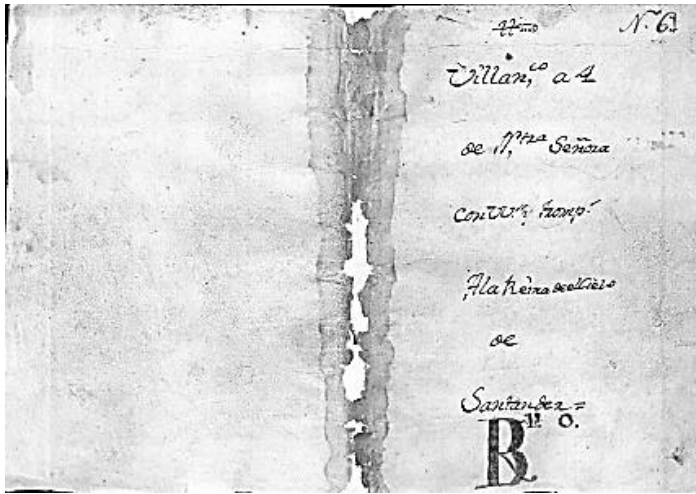 N.º 6
Villan.co a 4
de N.tra Señora
con VV.s y tromp.s
A la Reina de el Cielo
de
Santander =
B.n 0.